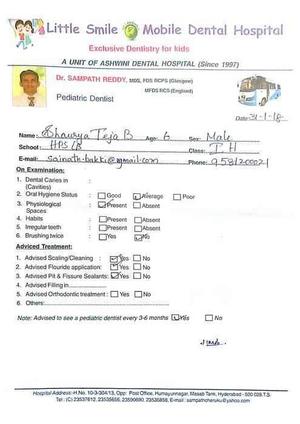 Little Smile Mobile Dental Hospital
Exclusive Dentistry for kids
A UNIT OF ASHWINI DENTAL HOSPITAL (Since 1997)
Dr. SAMPATH REDDY, MDS, FDS RCPS (Glasgow)
MFDS RCS (England)
Pediatric Dentist
Date: 31-1-18
Name: Bhavya Teja B Age: 6 Sex: Male
School: HPS Class: I H
E-mail: Phone:
On Examination:
1. Dental Caries in :
(Cavities)
2. Oral Hygiene Status : Good Average Poor
3. Physiological : Present Absent
Spaces
4. Habits : Present Absent
5. Irregular teeth : Present Absent
6. Brushing twice : Yes No
Adviced Treatment:
1. Advised Scaling/Cleaning : Yes No
2. Advised Flouride application: Yes No
3. Advised Pit & Fissure Sealants: Yes No
4. Advised Filling in
5. Advised Orthodontic treatment : Yes No
6. Others:
Note: Advised to see a pediatric dentist every 3-6 months Yes No
Hospital Address: H.No. 10-3-304/13, Opp: Post Office, Humayunnagar, Masab Tank, Hyderabad - 500 028.T.S.
Tel.: (C) 23537612, 23535656, 23590690, 23535858, E-mail : sampathcheruku@yahoo.com